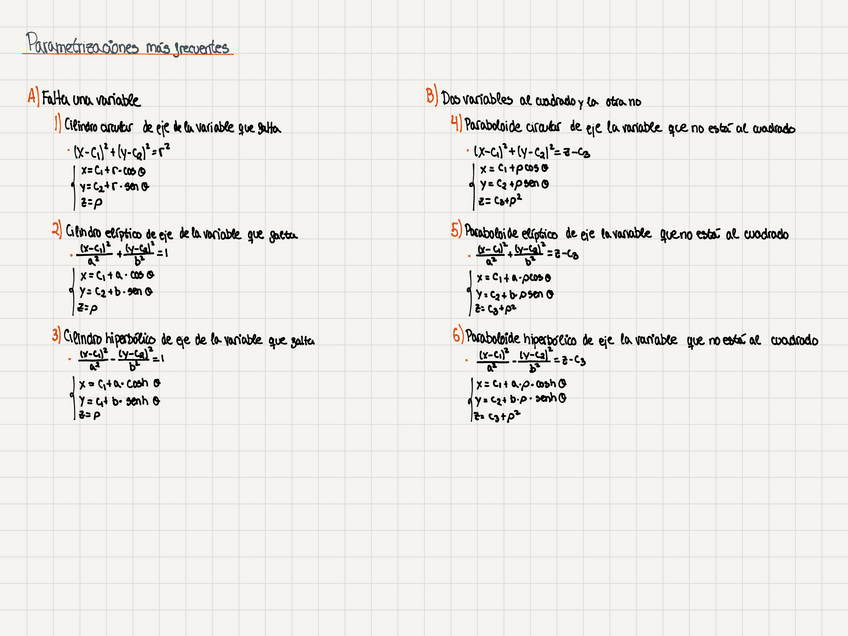 Parametrizaciones más frecuentes
A) Falta una variable
1) Cilindro circular de eje de la variable que falta
· (x-c₁)²+(y-c₂)²=r²
x=c₁+r·cos θ
y=c₂+r·sen θ
z=ρ
2) Cilindro elíptico de eje de la variable que falta
· (x-c₁)²/a² + (y-c₂)²/b² =1
x=c₁+a·cos θ
y=c₂+b·sen θ
z=ρ
3) Cilindro hiperbólico de eje de la variable que falta
· (x-c₁)²/a² - (y-c₂)²/b² =1
x=c₁+a·cosh θ
y=c₁+b·senh θ
z=ρ
B) Dos variables al cuadrado y la otra no
4) Paraboloide circular de eje la variable que no está al cuadrado
· (x-c₁)²+(y-c₂)²=z-c₃
x=c₁+ρcos θ
y=c₂+ρsen θ
z=c₃+ρ²
5) Paraboloide elíptico de eje la variable que no está al cuadrado
· (x-c₁)²/a² + (y-c₂)²/b² =z-c₃
x=c₁+a·ρcos θ
y=c₂+b·ρsen θ
z=c₃+ρ²
6) Paraboloide hiperbólico de eje la variable que no está al cuadrado
· (x-c₁)²/a² - (y-c₂)²/b² =z-c₃
x=c₁+a·ρ·cosh θ
y=c₂+b·ρ·senh θ
z=c₃+ρ²